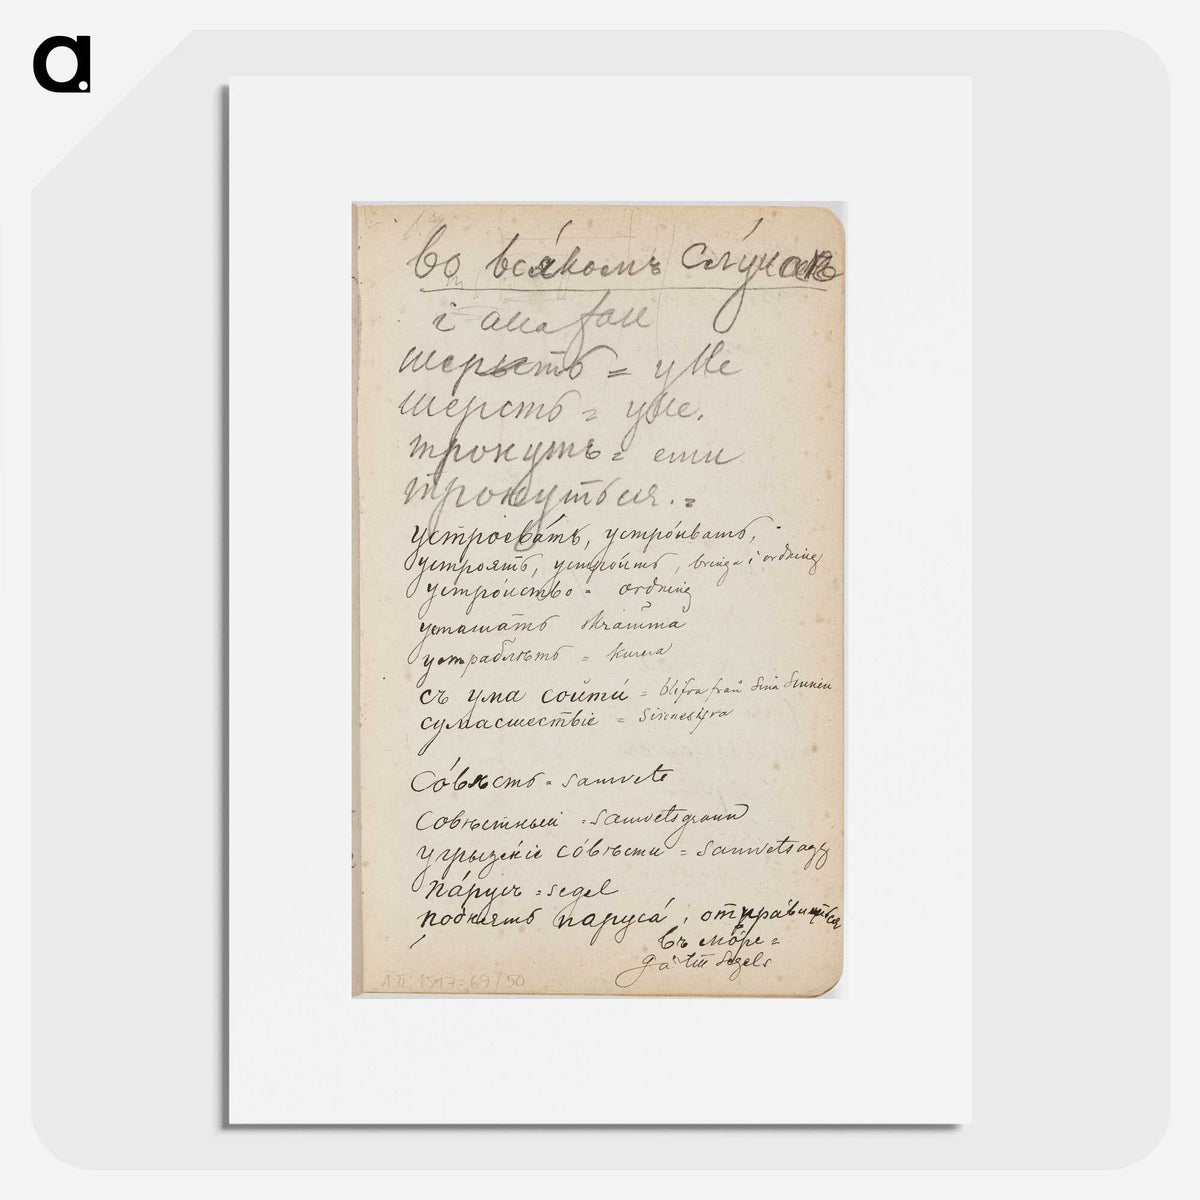 a.
во вся́комъ слу́чаѣ
i alla fall
шерысть = ylle
шерсть = ylle.
тронуть =
тронуться. =
устроева́ть, устро́ивать,
устроять, устро́ить, bringa i ordning
устро́йство = ordning
устшать skrämma
= kurera
съ ума сойти́ = blifva från sina sinnen
сумасшествіе =
Со́вѣсть = samvete
Совѣстный = samvetsgrann
угрызе́ніе со́вѣсти = samvetsagg
па́русъ = segel
поднять паруса́, отпра́виться
въ мо́ре =
gå till segels
A II 1517=69/50